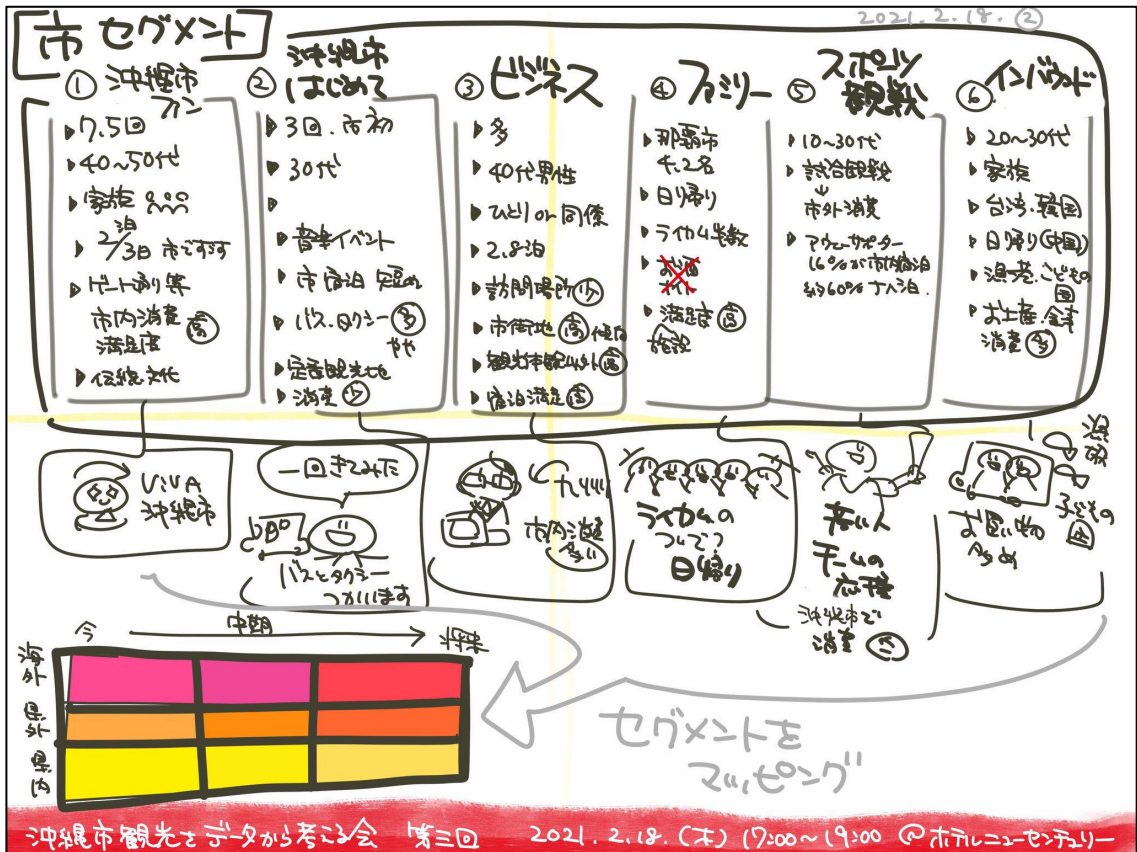 2021.2.18.②
市セグメント
① 沖縄市
ファン
▶7.5回
▶40~50代
▶家族
▶2泊/3日 市ですごす
▶ゲート通り等
市内消費 高
満足度
▶伝統文化
② 沖縄市
はじめて
▶3回.市初
▶30代
▶
▶音楽イベント
▶市宿泊 短め
▶バス.タクシー 多
やや
▶定番観光地
▶消費 少
③ ビジネス
▶多
▶40代男性
▶ひとり or 同僚
▶2.8泊
▶訪問場所 少
▶市街地 高 傾向
▶観光市観以外 高
▶宿泊満足 高
④ ファミリー
▶那覇市
4.2名
▶日り帰り
▶ライカム半数
▶お酒
ナイト
▶満足度 高
施設
⑤ スポーツ
観戦
▶10~30代
▶試合観戦
↓
市外消費
▶アウェーサポーター
16%が市内宿泊
約60% 1人泊.
⑥ インバウンド
▶20~30代
▶家族
▶台湾.韓国
▶日帰り(中国)
▶漁港.こどもの
国
▶お土産.
消費 多
ViVA
沖縄市
一回きてみた
バスとタクシー
つかいます
九州
市内消費
多い
ライカムの
ついで?
日帰り
若い人
チームの
応援
沖縄市で
消費
漁港
子どもの
国
お買い物
多め
今 → 中期 → 将来
海外
県外
県内
セグメントを
マッピング
沖縄市観光をデータから考える会 第三回 2021.2.18.(木) 17:00~19:00 @ホテルニューセンチュリー